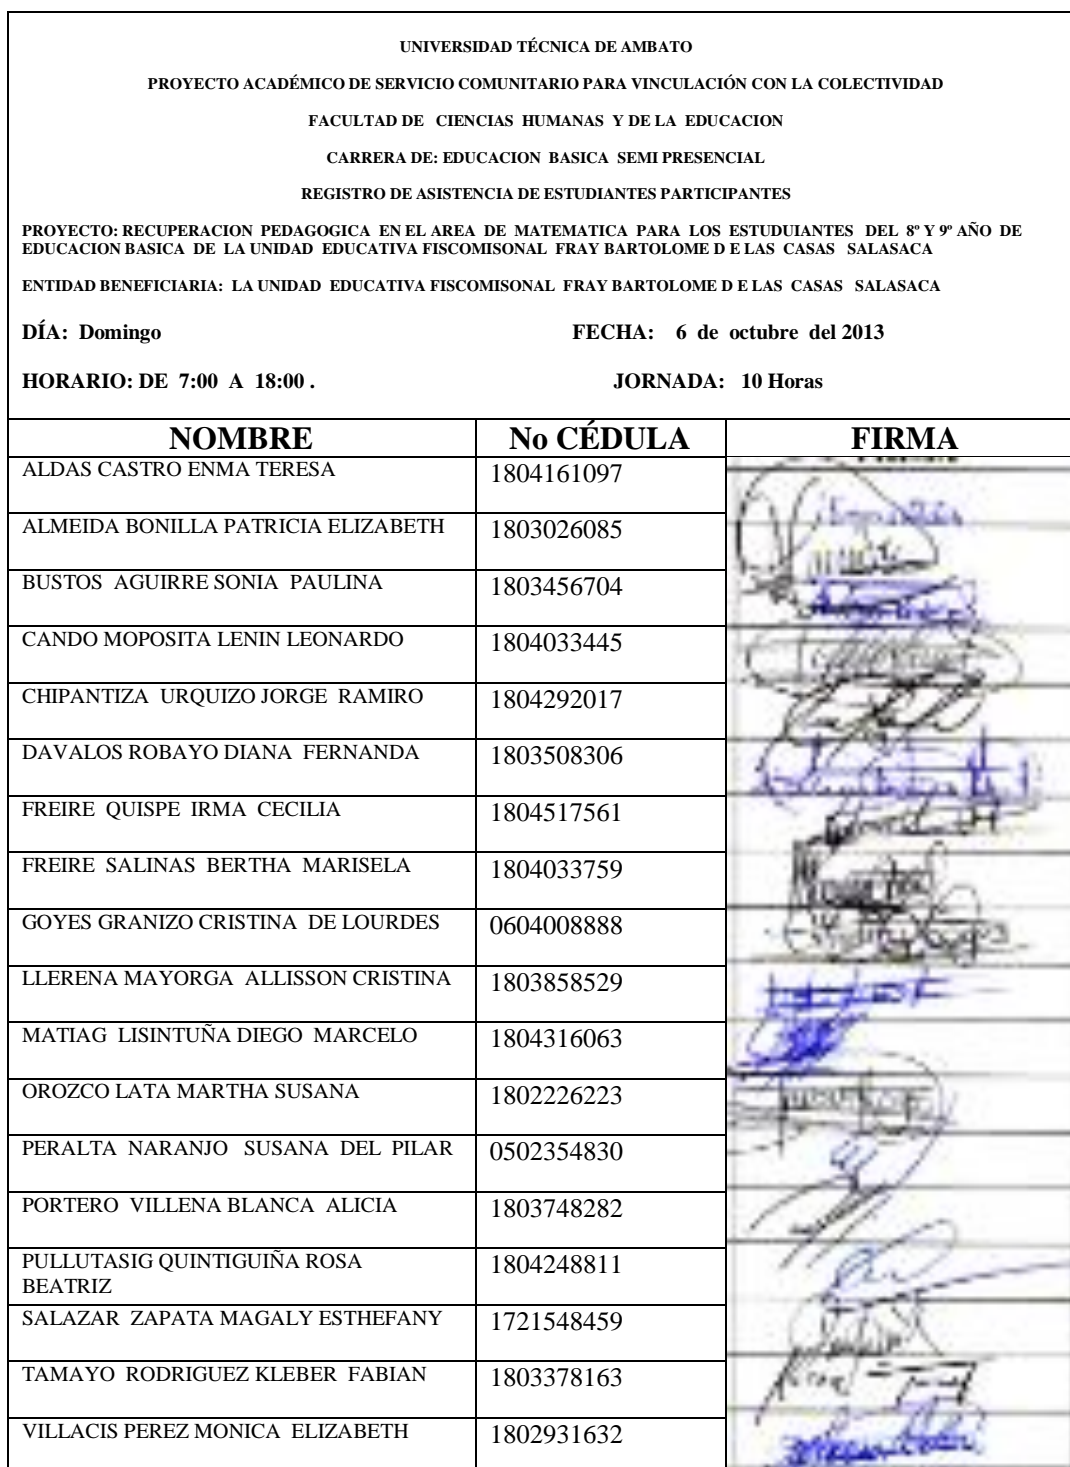 UNIVERSIDAD TÉCNICA DE AMBATO
PROYECTO ACADÉMICO DE SERVICIO COMUNITARIO PARA VINCULACIÓN CON LA COLECTIVIDAD
FACULTAD DE CIENCIAS HUMANAS Y DE LA EDUCACION
CARRERA DE: EDUCACION BASICA SEMI PRESENCIAL
REGISTRO DE ASISTENCIA DE ESTUDIANTES PARTICIPANTES
PROYECTO: RECUPERACION PEDAGOGICA EN EL AREA DE MATEMATICA PARA LOS ESTUDUIANTES DEL 8º Y 9º AÑO DE
EDUCACION BASICA DE LA UNIDAD EDUCATIVA FISCOMISONAL FRAY BARTOLOME D E LAS CASAS SALASACA
ENTIDAD BENEFICIARIA: LA UNIDAD EDUCATIVA FISCOMISONAL FRAY BARTOLOME D E LAS CASAS SALASACA
DÍA: Domingo FECHA: 6 de octubre del 2013
HORARIO: DE 7:00 A 18:00 . JORNADA: 10 Horas
NOMBRE No CÉDULA FIRMA
ALDAS CASTRO ENMA TERESA 1804161097
ALMEIDA BONILLA PATRICIA ELIZABETH 1803026085
BUSTOS AGUIRRE SONIA PAULINA 1803456704
CANDO MOPOSITA LENIN LEONARDO 1804033445
CHIPANTIZA URQUIZO JORGE RAMIRO 1804292017
DAVALOS ROBAYO DIANA FERNANDA 1803508306
FREIRE QUISPE IRMA CECILIA 1804517561
FREIRE SALINAS BERTHA MARISELA 1804033759
GOYES GRANIZO CRISTINA DE LOURDES 0604008888
LLERENA MAYORGA ALLISSON CRISTINA 1803858529
MATIAG LISINTUÑA DIEGO MARCELO 1804316063
OROZCO LATA MARTHA SUSANA 1802226223
PERALTA NARANJO SUSANA DEL PILAR 0502354830
PORTERO VILLENA BLANCA ALICIA 1803748282
PULLUTASIG QUINTIGUIÑA ROSA 1804248811
BEATRIZ
SALAZAR ZAPATA MAGALY ESTHEFANY 1721548459
TAMAYO RODRIGUEZ KLEBER FABIAN 1803378163
VILLACIS PEREZ MONICA ELIZABETH 1802931632